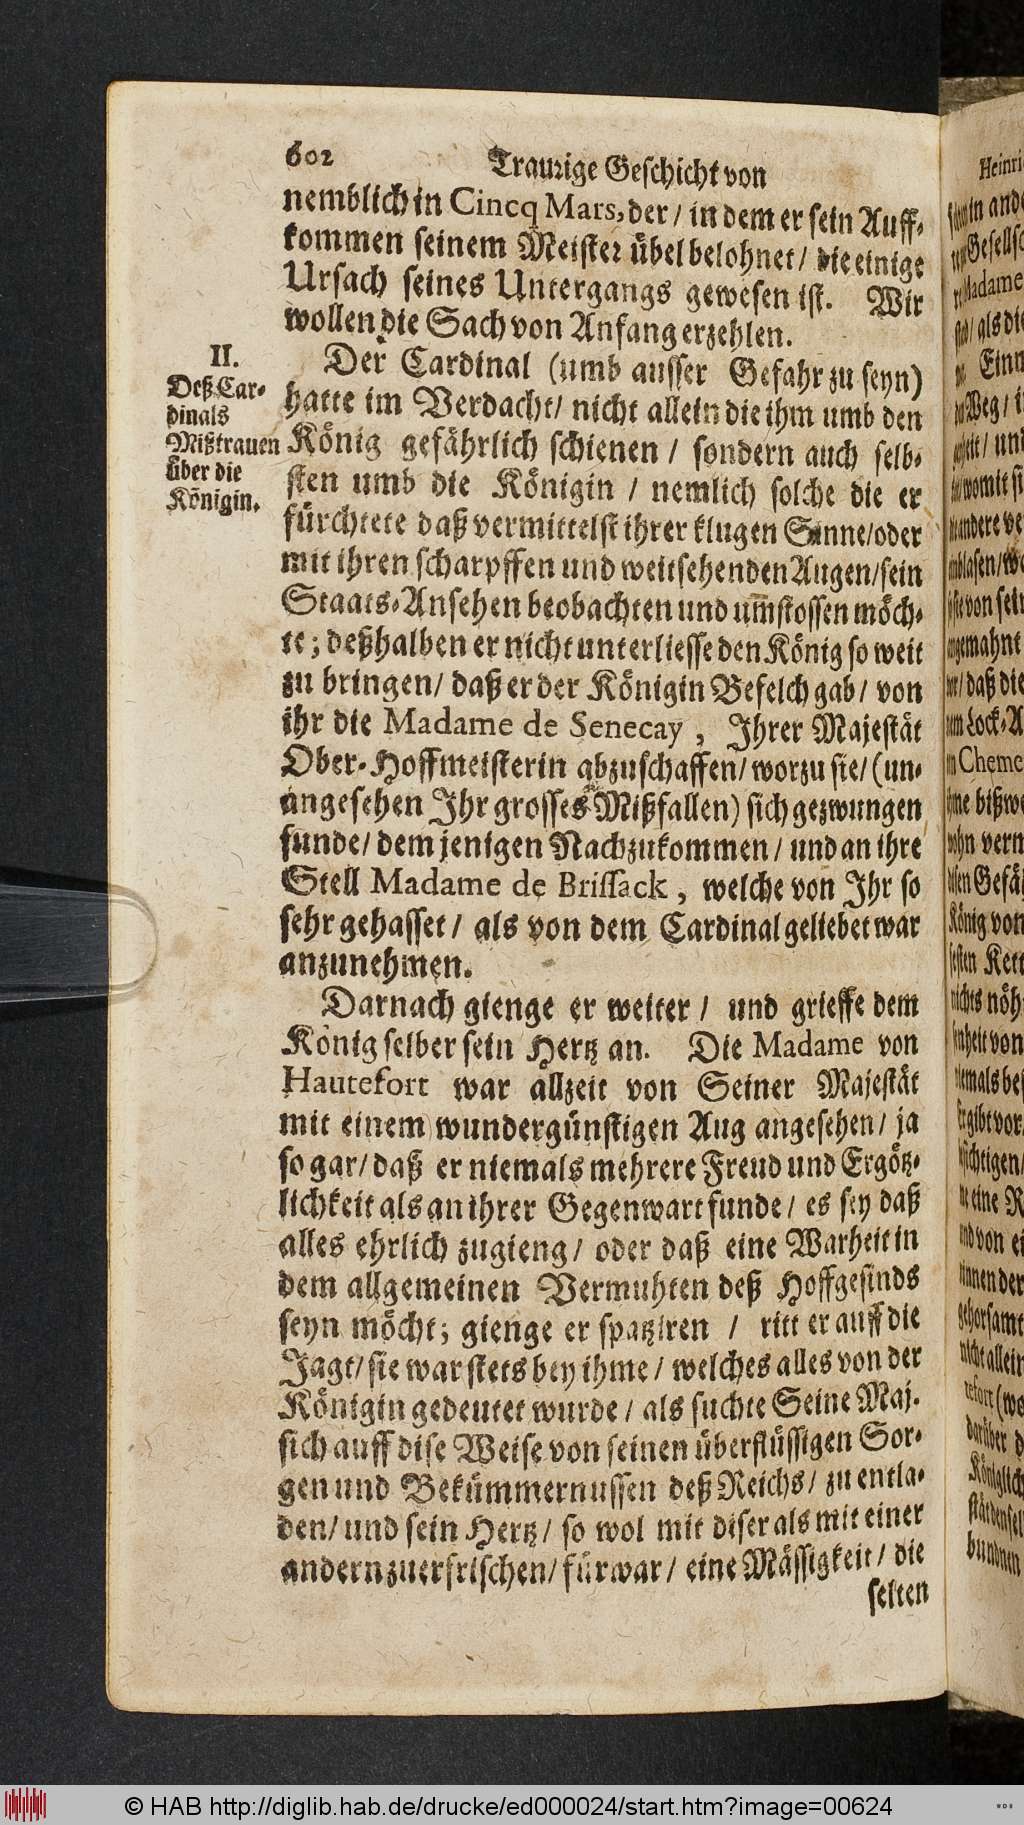 602 Traurige Geschicht von
nemblich in Cincq Mars, der / in dem er sein Auff-
kommen seinem Meister übel belohnet / die einige
Ursach seines Untergangs gewesen ist. Wir
wollen die Sach von Anfang erzehlen.
II.
Deß Car-
dinals
Mißtrauen
über die
Königin.
Der Cardinal (umb ausser Gefahr zu seyn)
hatte im Verdacht / nicht allein die ihm umb den
König gefährlich schienen / sondern auch selb-
sten umb die Königin / nemlich solche die er
fürchtete daß vermittelst ihrer klugen Sinne / oder
mit ihren scharpffen und weitsehenden Augen / sein
Staats-Ansehen beobachten und um̅stossen möch-
te; deßhalben er nicht unterliesse den König so weit
zu bringen / daß er der Königin Befelch gab / von
ihr die Madame de Senecay, Ihrer Majestät
Ober-Hoffmeisterin abzuschaffen / worzu sie / (un-
angesehen Ihr grosses Mißfallen) sich gezwungen
funde / dem jenigen Nachzukommen / und an ihre
Stell Madame de Brissack, welche von Ihr so
sehr gehasset / als von dem Cardinal geliebet war
anzunehmen.
Darnach gienge er weiter / und grieffe dem
König selber sein Hertz an. Die Madame von
Hautefort war allzeit von Seiner Majestät
mit einem wundergünstigen Aug angesehen / ja
so gar / daß er niemals mehrere Freud und Ergötz-
lichkeit als an ihrer Gegenwart funde / es sey daß
alles ehrlich zugieng / oder daß eine Warheit in
dem allgemeinen Vermuhten deß Hoffgesinds
seyn möcht; gienge er spatziren / ritt er auff die
Jagt / sie war stets bey ihme / welches alles von der
Königin gedeutet wurde / als suchte Seine Maj.
sich auff dise Weise von seinen überflüssigen Sor-
gen und Bekümmernussen deß Reichs / zu entla-
den / und sein Hertz / so wol mit diser als mit einer
andern zuerfrischen / fürwar / eine Mässigkeit / die
selten
© HAB http://diglib.hab.de/drucke/ed000024/start.htm?image=00624